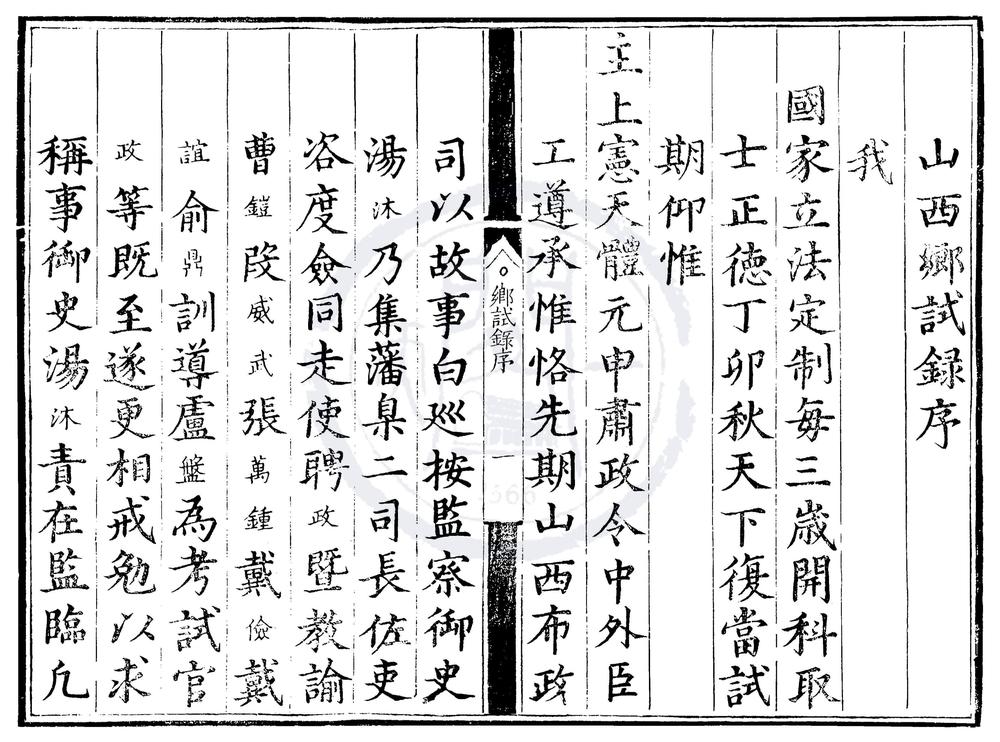 山西鄉試録序
我
國家立法定制毎三歲開科取
士正德丁卯秋天下復當試
期仰惟
主上憲天體元申肅政令中外臣
工遵承惟恪先期山西布政
鄉試錄序
一
司以故事白廵按監察御史
湯沐乃集藩臬二司長佐吏
咨度僉同走使聘政暨教諭
曹鎧段威武張萬鍾戴儉戴
誼俞鼎訓導盧盤為考試官
政等既至遂更相戒勉以求
稱事御史湯沐責在監臨凢